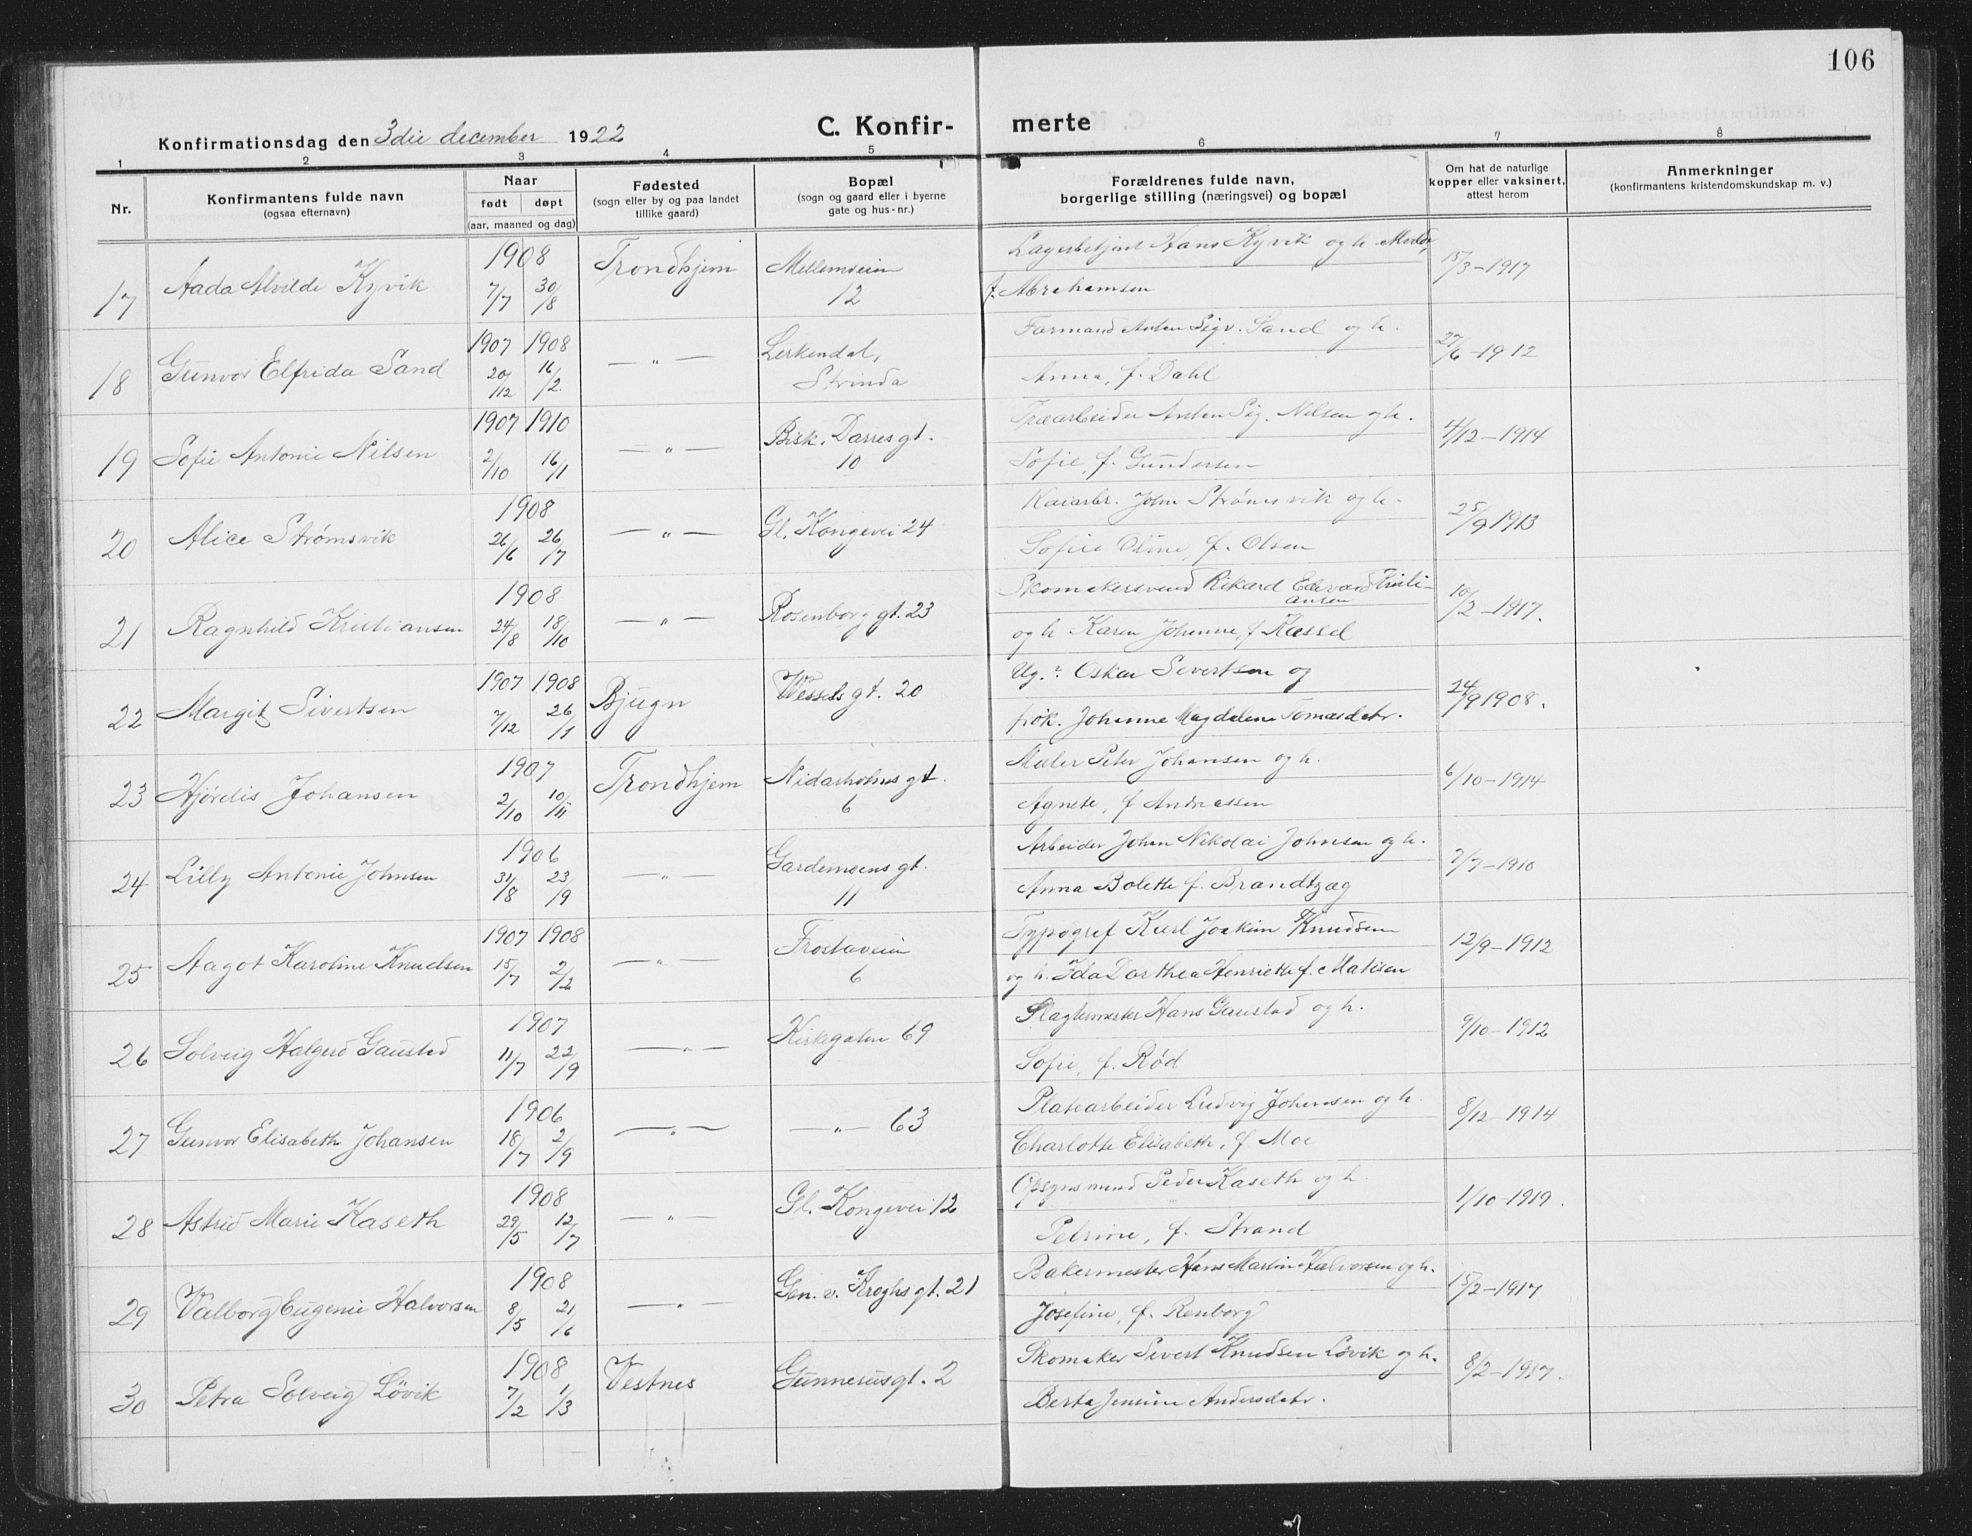 106
Konfirmationsdag den 3die december 1922
C. Konfir- merte
1 2 3 4 5 6 7 8
Nr.
Konfirmantens fulde navn
(ogsaa efternavn)
Naar
født døpt
(aar, maaned og dag)
Fødested
(sogn eller by og paa landet
tillike gaard)
Bopæl
(sogn og gaard eller i byerne
gate og hus-nr.)
Forældrenes fulde navn,
borgerlige stilling (næringsvei) og bopæl
Om hat de naturlige
kopper eller vaksinert,
attest herom
Anmerkninger
(konfirmantens kristendomskundskap m. v.)
17 Aada Alvilde Kyvik 1908 7/7 30/8 Trondhjem Mellemveien 12
Lagerbetjent Hans Kyvik og h.
f. Abrahamsen 15/3-1917
18 Gunvor Elfrida Sand 1907 20/12 1908 16/2 —„— Lerkendal, Strinda
Formand Anton Sigv. Sand og h.
Anna, f. Dahl 27/6-1912
19 Sofie Antonie Nilsen 1907 2/10 1910 16/1 —„— Bisk. Darres gt. 10
Træarbeider Anton Sig. Nilsen og h.
Sofie, f. Gundersen 4/12-1914
20 Alice Strømsvik 1908 26/6 26/7 —„— Gl. Kongevei 24
Kaiarbr. John Strømsvik og h.
Sofie Oline, f. Olsen 25/9 1913
21 Ragnhild Kristiansen 1908 24/8 18/10 —„— Rosenborg gt. 23
Skomakersvend Rikard Edevard Kristi-
ansen
og h Karen Johanne, f Kassel 10/2-1917.
22 Margit Sivertsen 1907 7/12 1908 26/1 Bjugn Wessels gt. 20
Ug.: Oskar Sivertsen og
frøk. Johanne Magdalene Tomasdatr. 24/9 1908.
23 Hjørdis Johansen 1907 2/10 10/11 Trondhjem Nidarholms gt. 6
Maler Peter Johansen og h.
Agnete, f Andreassen 6/10-1914
24 Lilly Antonie Johnsen 1906 31/8 23/9 —„— Gardemoens gt. 11
Arbeider Johan Nikolai Johnsen og h.
Anna Bolette f. Brandtzæg 7/7-1910
25 Aagot Karoline Knudsen 1907 15/7 1908 2/2 —„— Frostaveien 6
Typograf Karl Joakim Knudsen
og h. Ida Dorthea Henriette f. Matisen 12/9-1912
26 Solveig Halgerd Gaustad 1907 11/7 22/9 —„— Kirkegaten 69
Slagtermester Hans Gaustad og h.
Sofie, f. Rød 9/10-1912
27 Gunvor Elisabeth Johansen 1906 18/7 2/9 —„— —„— 63
Platearbeider Ludvig Johansen og h.
Charlotte Elisabeth, f Moe 8/12-1914
28 Astrid Marie Kaseth 1908 29/5 12/7 —„— Gl. Kongevei 12
Opsynsmand Peder Kaseth og h.
Petrine, f. Strand 1/10-1919.
29 Valborg Eugenie Halvorsen 1908 8/5 21/6 —„— Gen. v. Kroghs gt. 21
Bakermester Hans Martin Halvorsen og h.
Josefine, f. Renborg 15/2-1917
30 Petra Solveig Løvik 1908 7/2 1/3 Vestnes Gunnerusgt. 2
Skomaker Sivert Knudsen Løvik og h.
Berta Jensine Andersdatr. 8/2-1917.